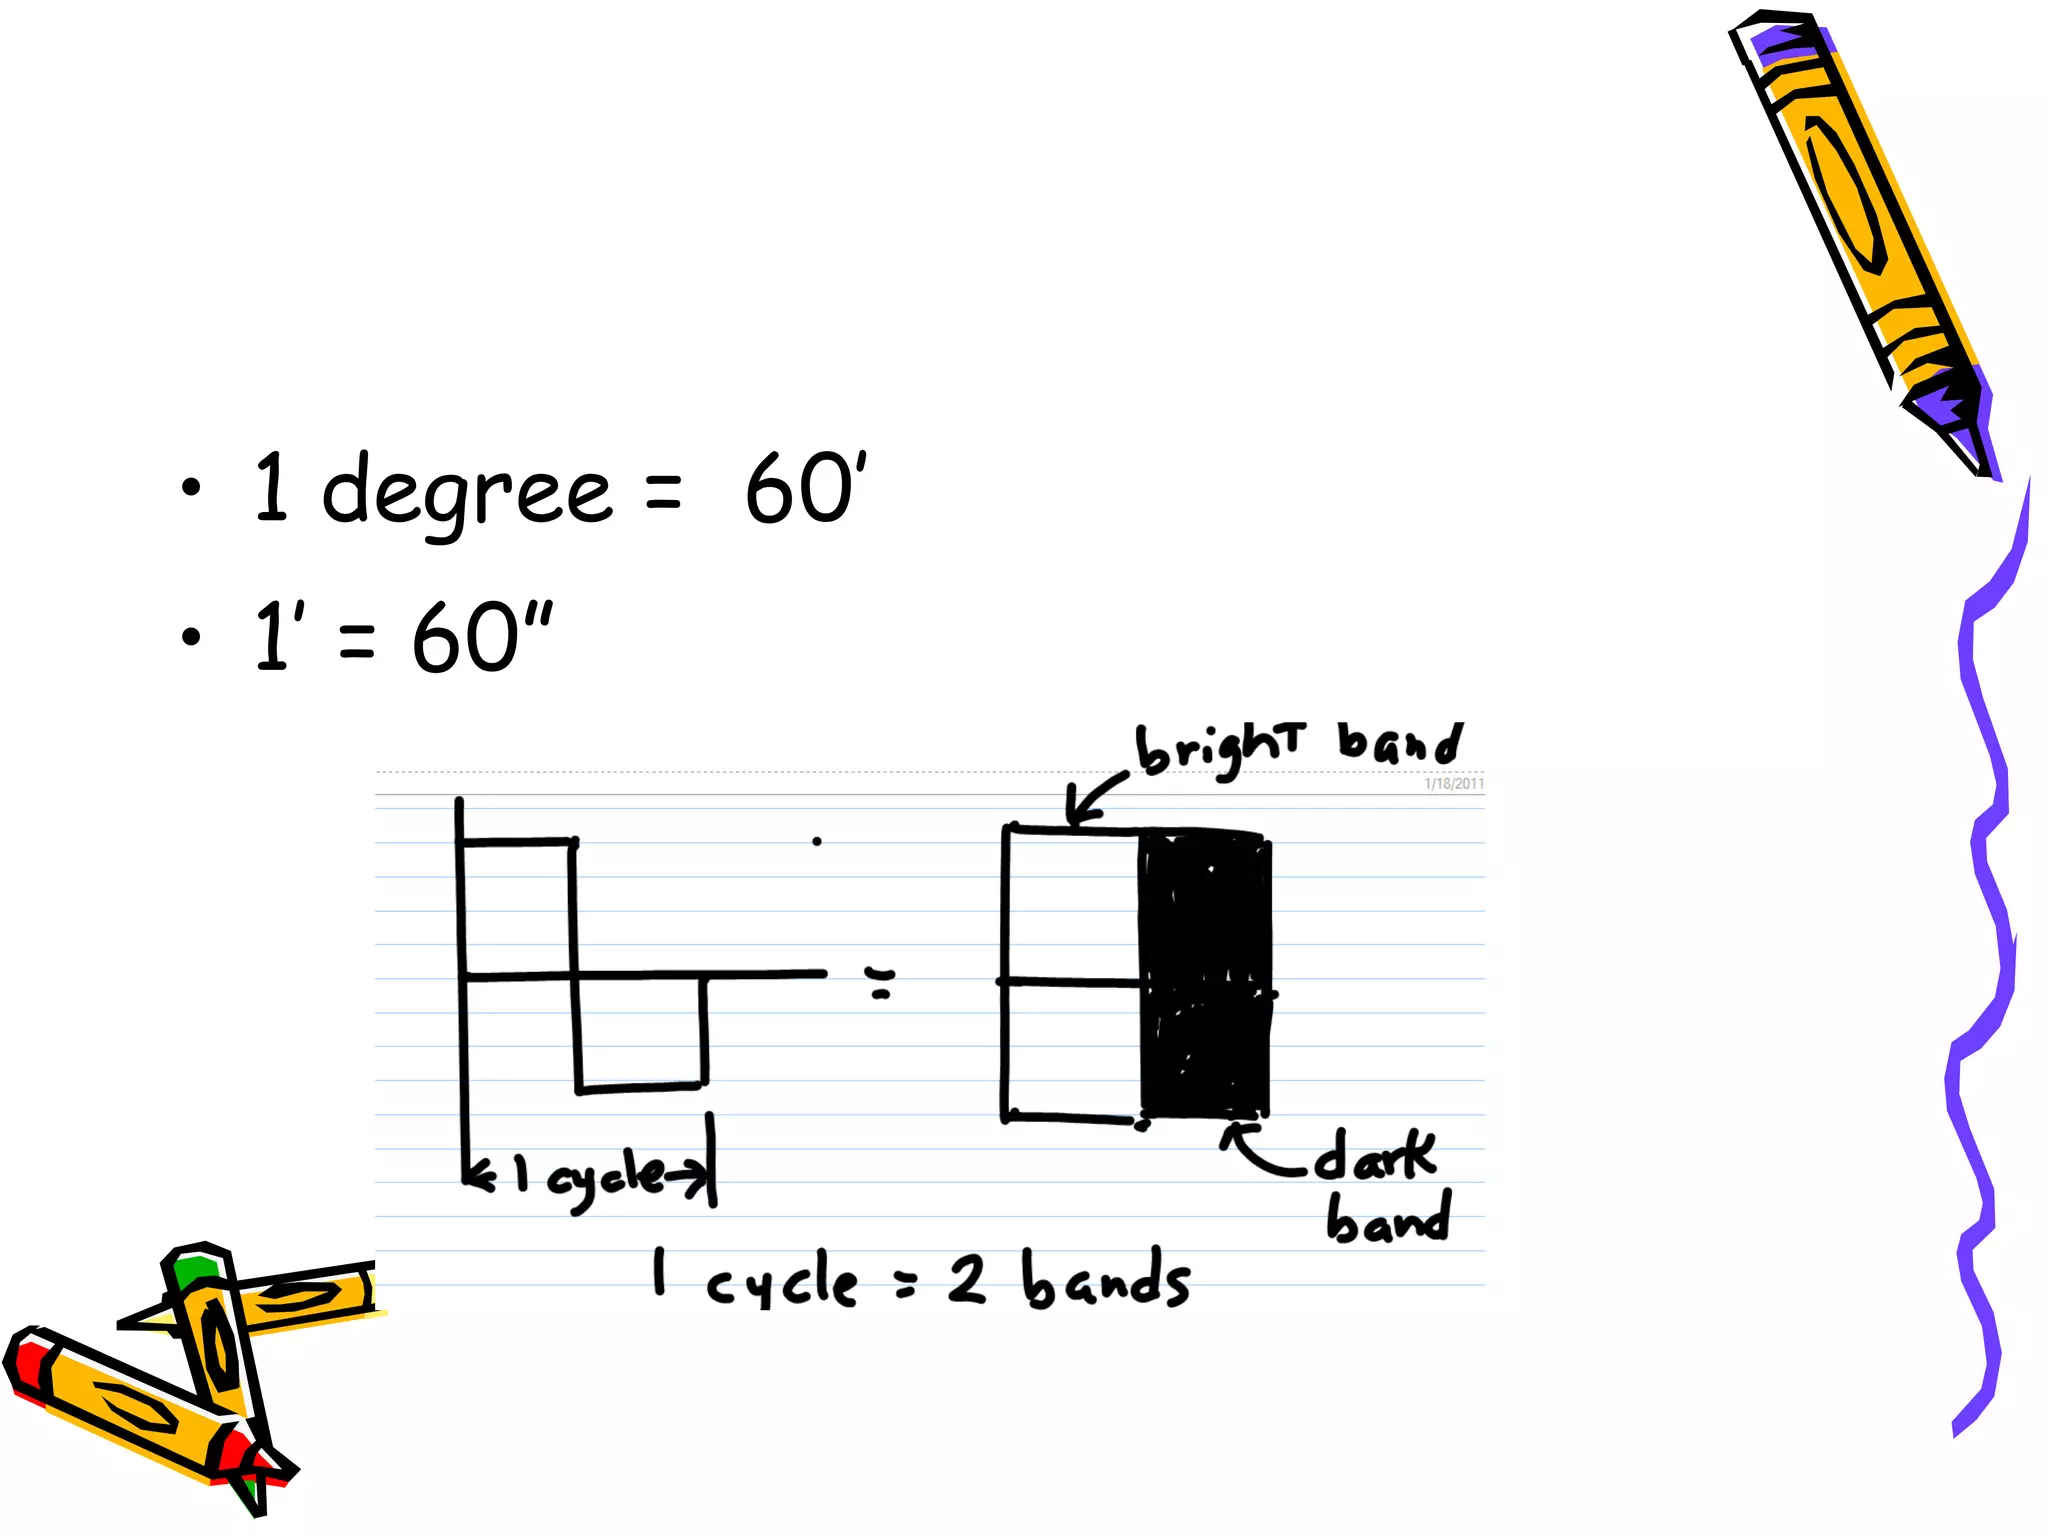 • 1 degree = 60'
• 1' = 60"
bright band
1/18/2011
=
1 cycle
dark
band
1 cycle = 2 bands